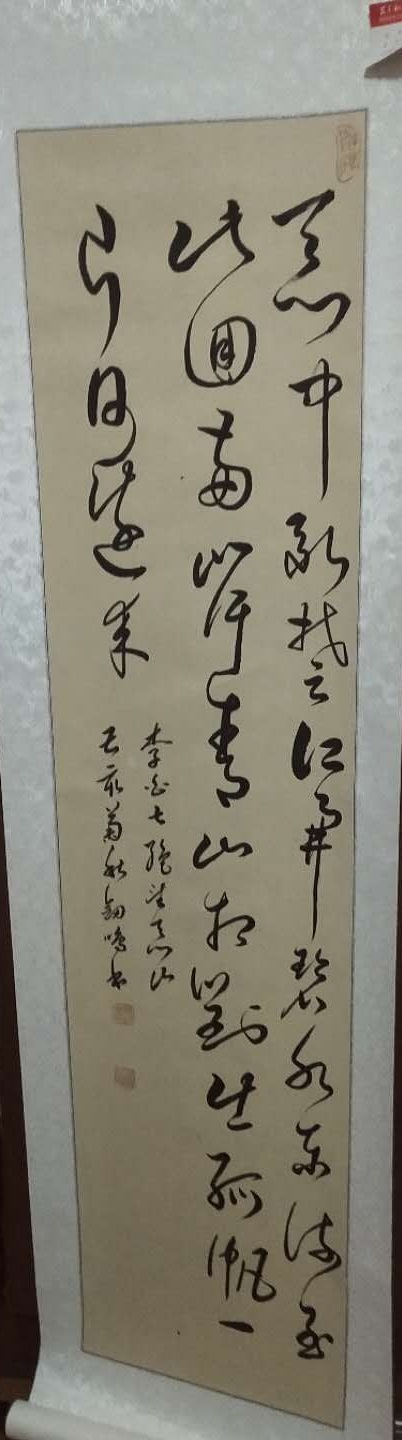 天門中斷楚江開碧水東流至
此回兩岸青山相對出孤帆一
片日邊來
李白七絕望天門山
菊秋劍鳴書